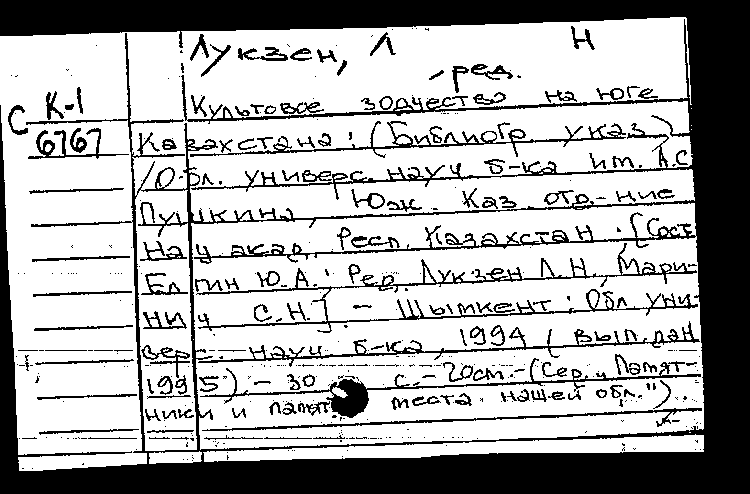 Лукзен, Л Н
, ред.
С К-1
6767
Культовое зодчество на юге
Казахстана: (Библиогр. указ)
/Обл. универс. науч. б-ка им. А.С
Пушкина, Юж. Каз. отд-ние
Нац акад. Респ. Казахстан; [Сост.
Елгин Ю.А.; Ред. Лукзен Л.Н., Мари-
нич С.Н]. - Шымкент: Обл уни-
верс. науч. б-ка, 1994 (вып. дан
1995). - 30 с. - 20см. - (Сер. "Памят-
ники и памят места нашей обл.").